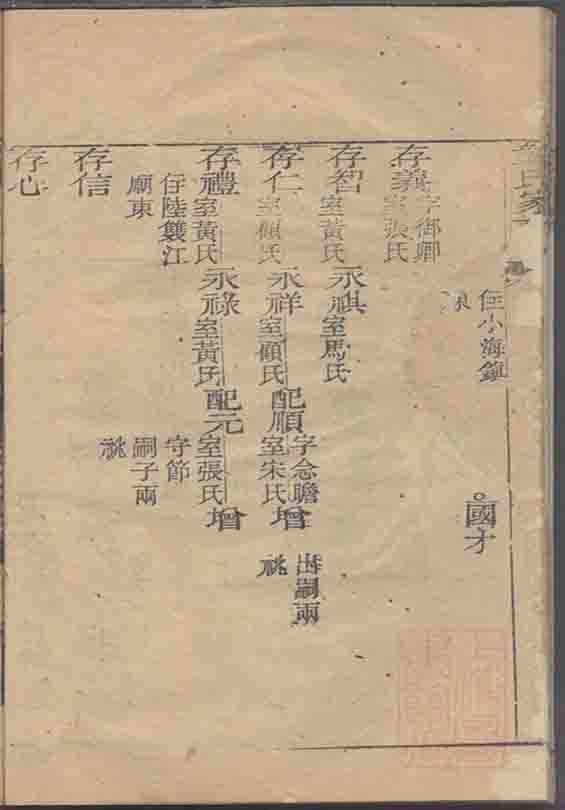 住小海鎮
國才
存義 字御卿 室張氏
存智 室黃氏 永祺 室馬氏
存仁 室顧氏 永祥 室顧氏 配順 字念瞻 室宋氏 增 出嗣兩祧
存禮 室黃氏 住陸雙江廟東 永祿 室黃氏 配元 室張氏 守節 嗣子兩祧 增
存信
存心